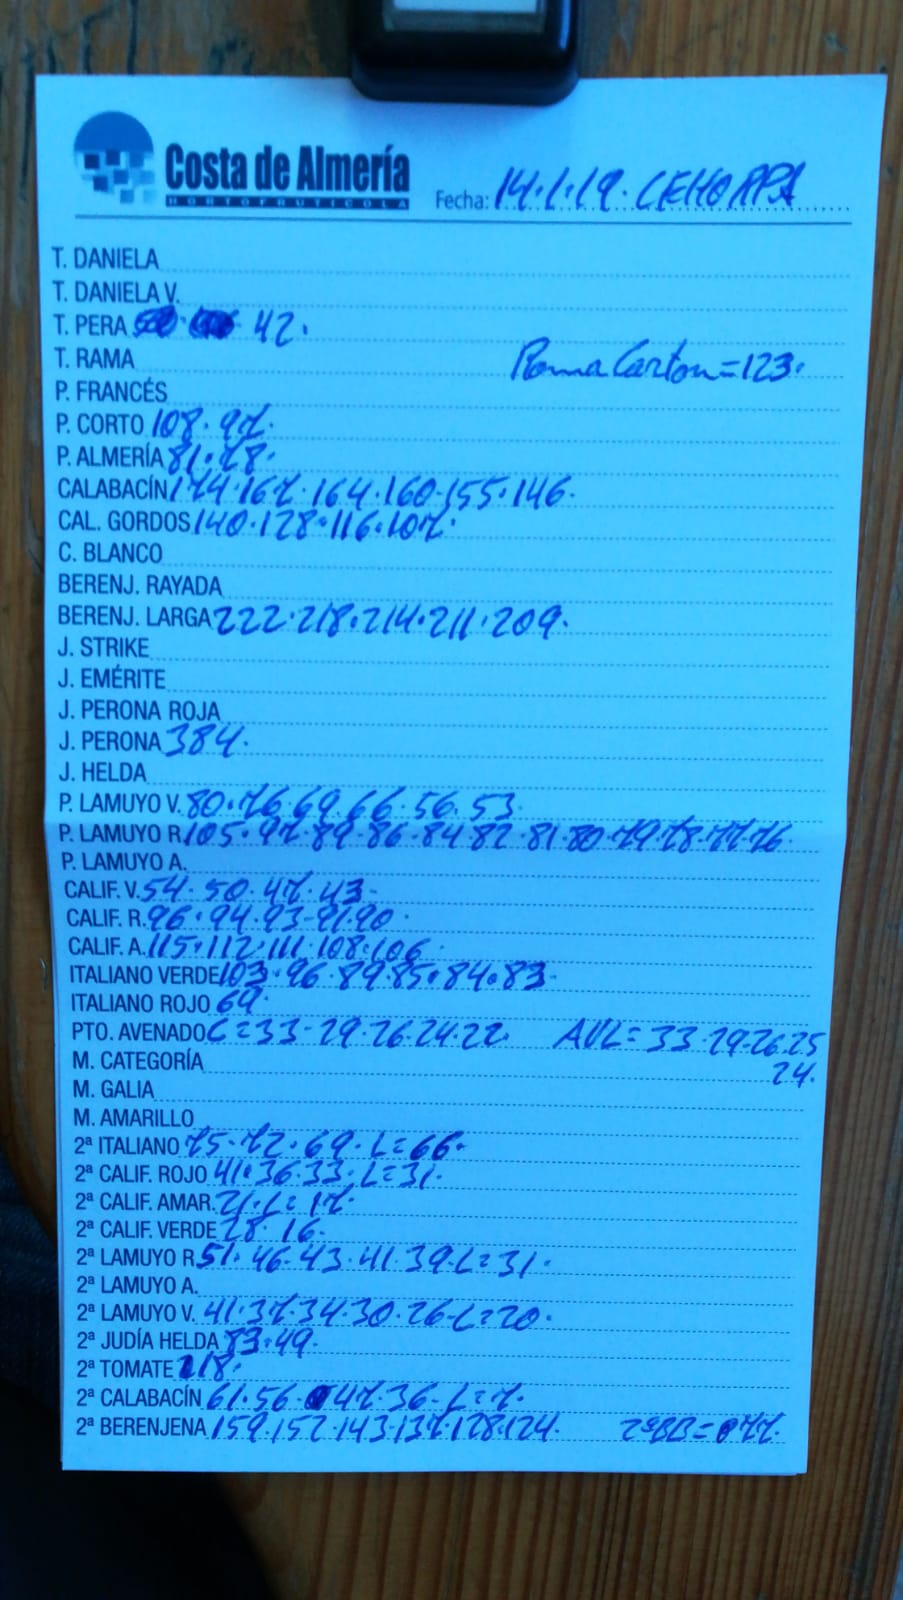 Costa de Almería
HORTOFRUTICOLA
Fecha: 14.1.19. CEHORPA
T. DANIELA
T. DANIELA V.
T. PERA 42.
T. RAMA Roma Carton=123.
P. FRANCÉS
P. CORTO 108.97.
P. ALMERÍA 81.78.
CALABACÍN 174.167.164.160.155.146.
CAL. GORDOS 140.128.116.107.
C. BLANCO
BERENJ. RAYADA
BERENJ. LARGA 222.218.214.211.209.
J. STRIKE
J. EMÉRITE
J. PERONA ROJA
J. PERONA 384.
J. HELDA
P. LAMUYO V. 80.76.69.66.56.53.
P. LAMUYO R. 105.97.89.86.84.82.81.80.79.78.77.76.
P. LAMUYO A.
CALIF. V. 54.50.47.43.
CALIF. R. 96.94.93.91.90.
CALIF. A. 115.112.111.108.106.
ITALIANO VERDE 103.96.89.85.84.83.
ITALIANO ROJO 69.
PTO. AVENADO C=33-29.26.24.22. AVL=33.29.26.25
24.
M. CATEGORÍA
M. GALIA
M. AMARILLO
2ª ITALIANO 75.72.69.L=66.
2ª CALIF. ROJO 41.36.33.L=31.
2ª CALIF. AMAR. 21.L=17.
2ª CALIF. VERDE 28.16.
2ª LAMUYO R. 51.46.43.41.39.L=31.
2ª LAMUYO A.
2ª LAMUYO V. 41.37.34.30.26.L=20.
2ª JUDÍA HELDA 83.49.
2ª TOMATE 118.
2ª CALABACÍN 61.56.47.36.L=7.
2ª BERENJENA 159.152.143.137.128.124. 2ªBB=77.